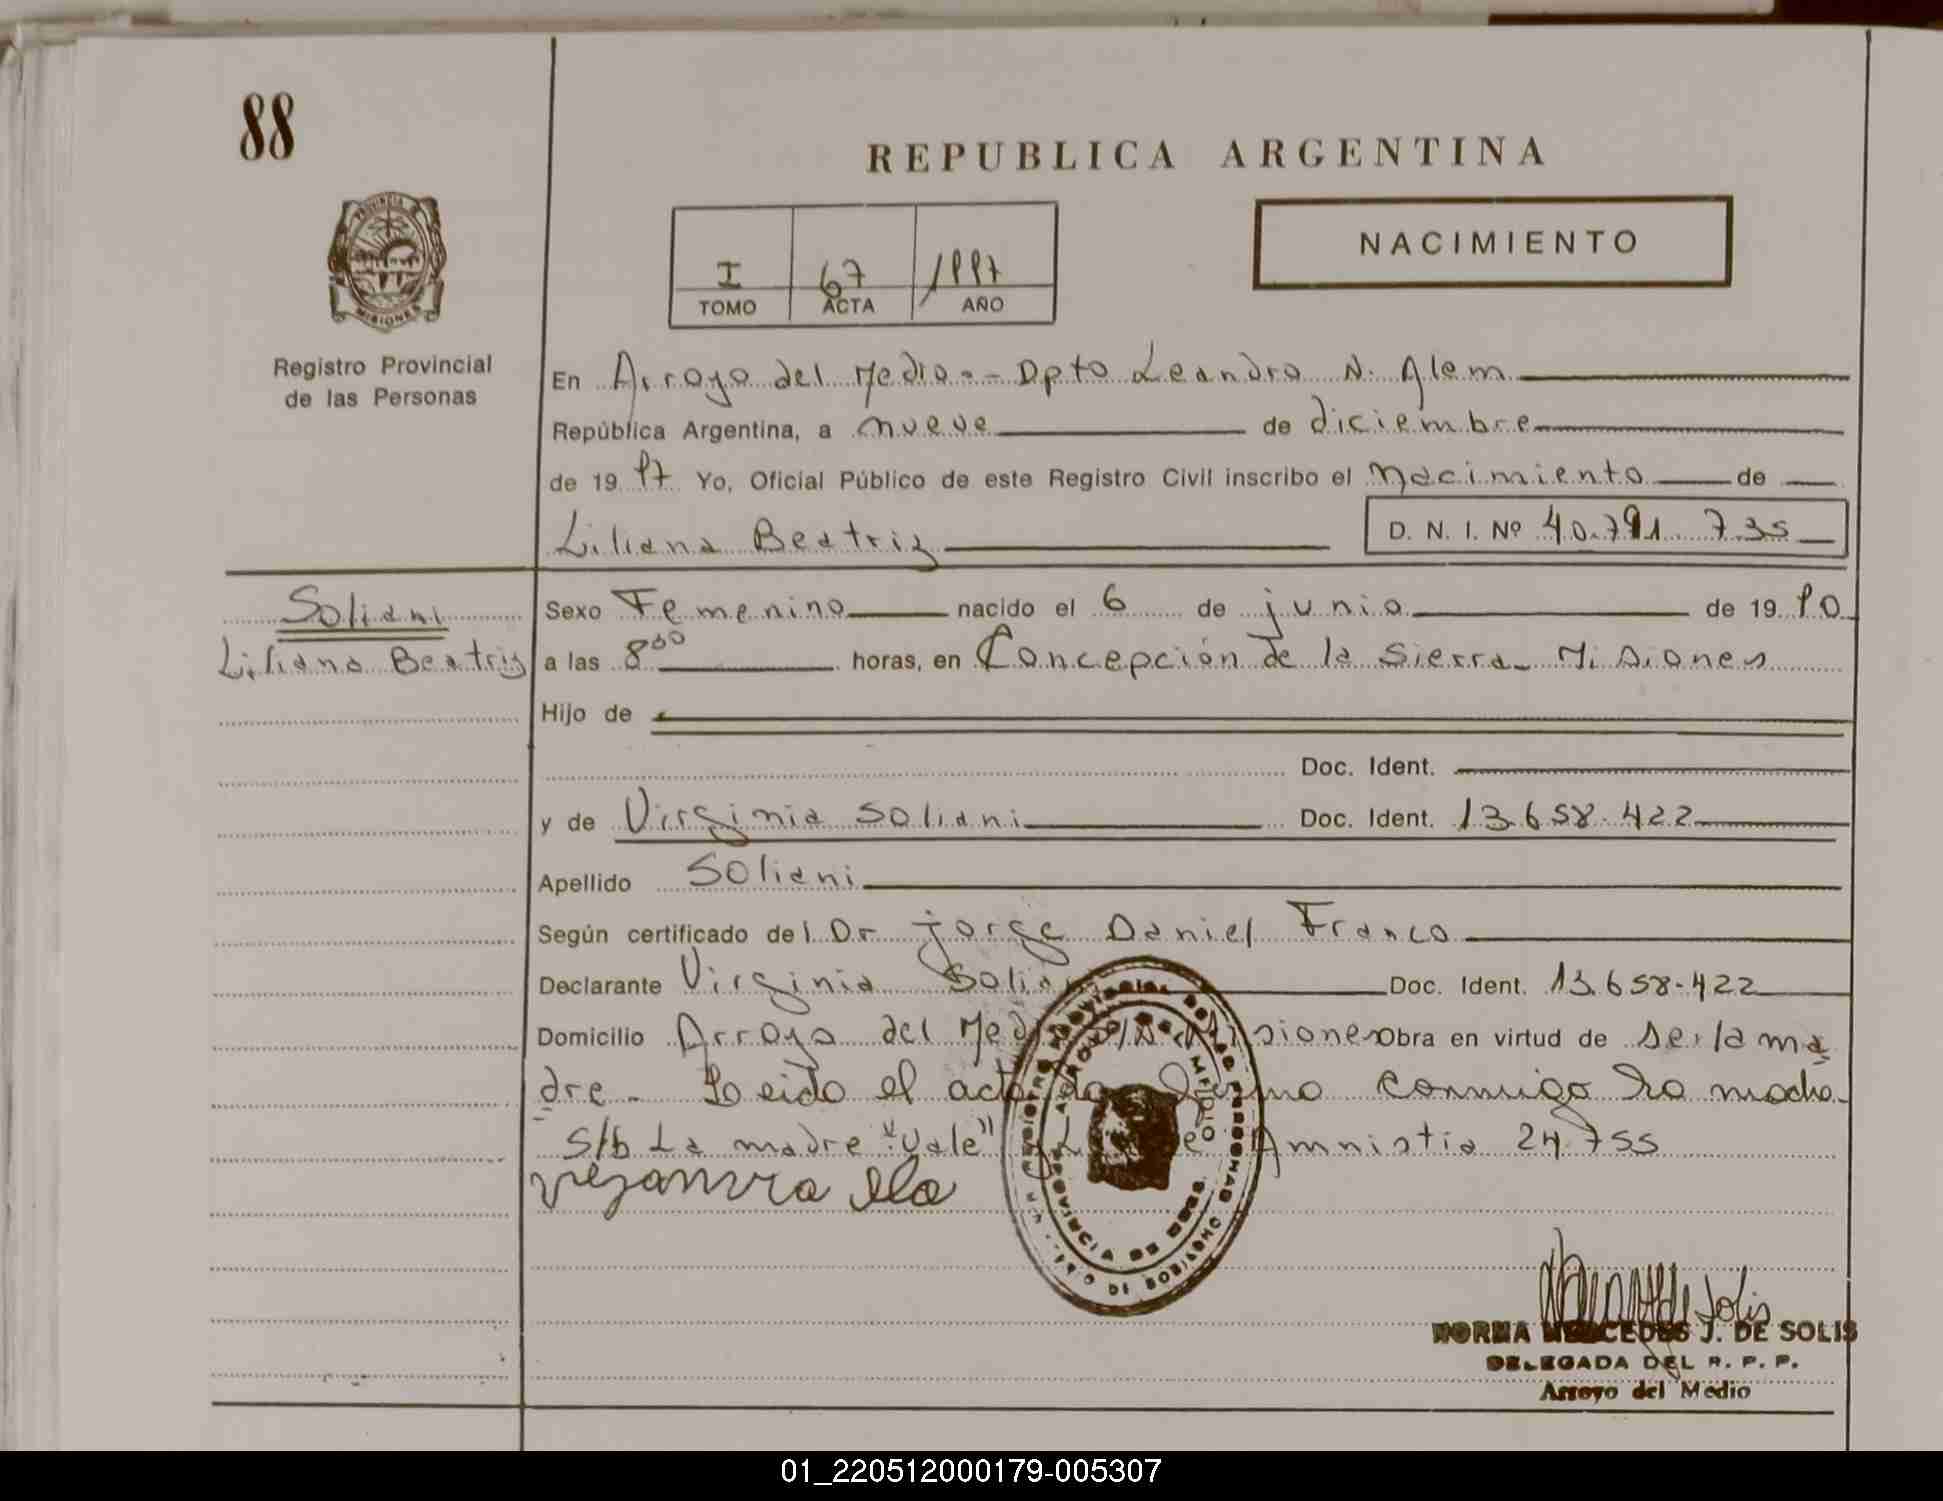 88
REPUBLICA ARGENTINA
PROVINCIA DE
MISIONES
Registro Provincial
de las Personas
I 67 1997
TOMO ACTA AÑO
NACIMIENTO
En Arroyo del Medio.- Dpto Leandro N. Alem
República Argentina, a nueve de diciembre
de 19 97 Yo, Oficial Público de este Registro Civil inscribo el Nacimiento de
Liliana Beatriz D. N. I. Nº 40.791.735
Soliani
Liliana Beatriz
Sexo Femenino nacido el 6 de junio de 19 90
a las 8³⁰ horas, en Concepción de la Sierra- Misiones
Hijo de
Doc. Ident.
y de Virginia Soliani Doc. Ident. 13.658.422
Apellido Soliani
Según certificado del Dr Jorge Daniel Franco
Declarante Virginia Soliani Doc. Ident. 13.658-422
Domicilio Arroyo del Medio Misiones Obra en virtud de ser la ma
dre- Leido el acta la firma conmigo
S/b La madre "Vale" Amnistia 24.755
NORMA MERCEDES J. DE SOLIS
DELEGADA DEL R. P. P.
Arroyo del Medio
01_220512000179-005307